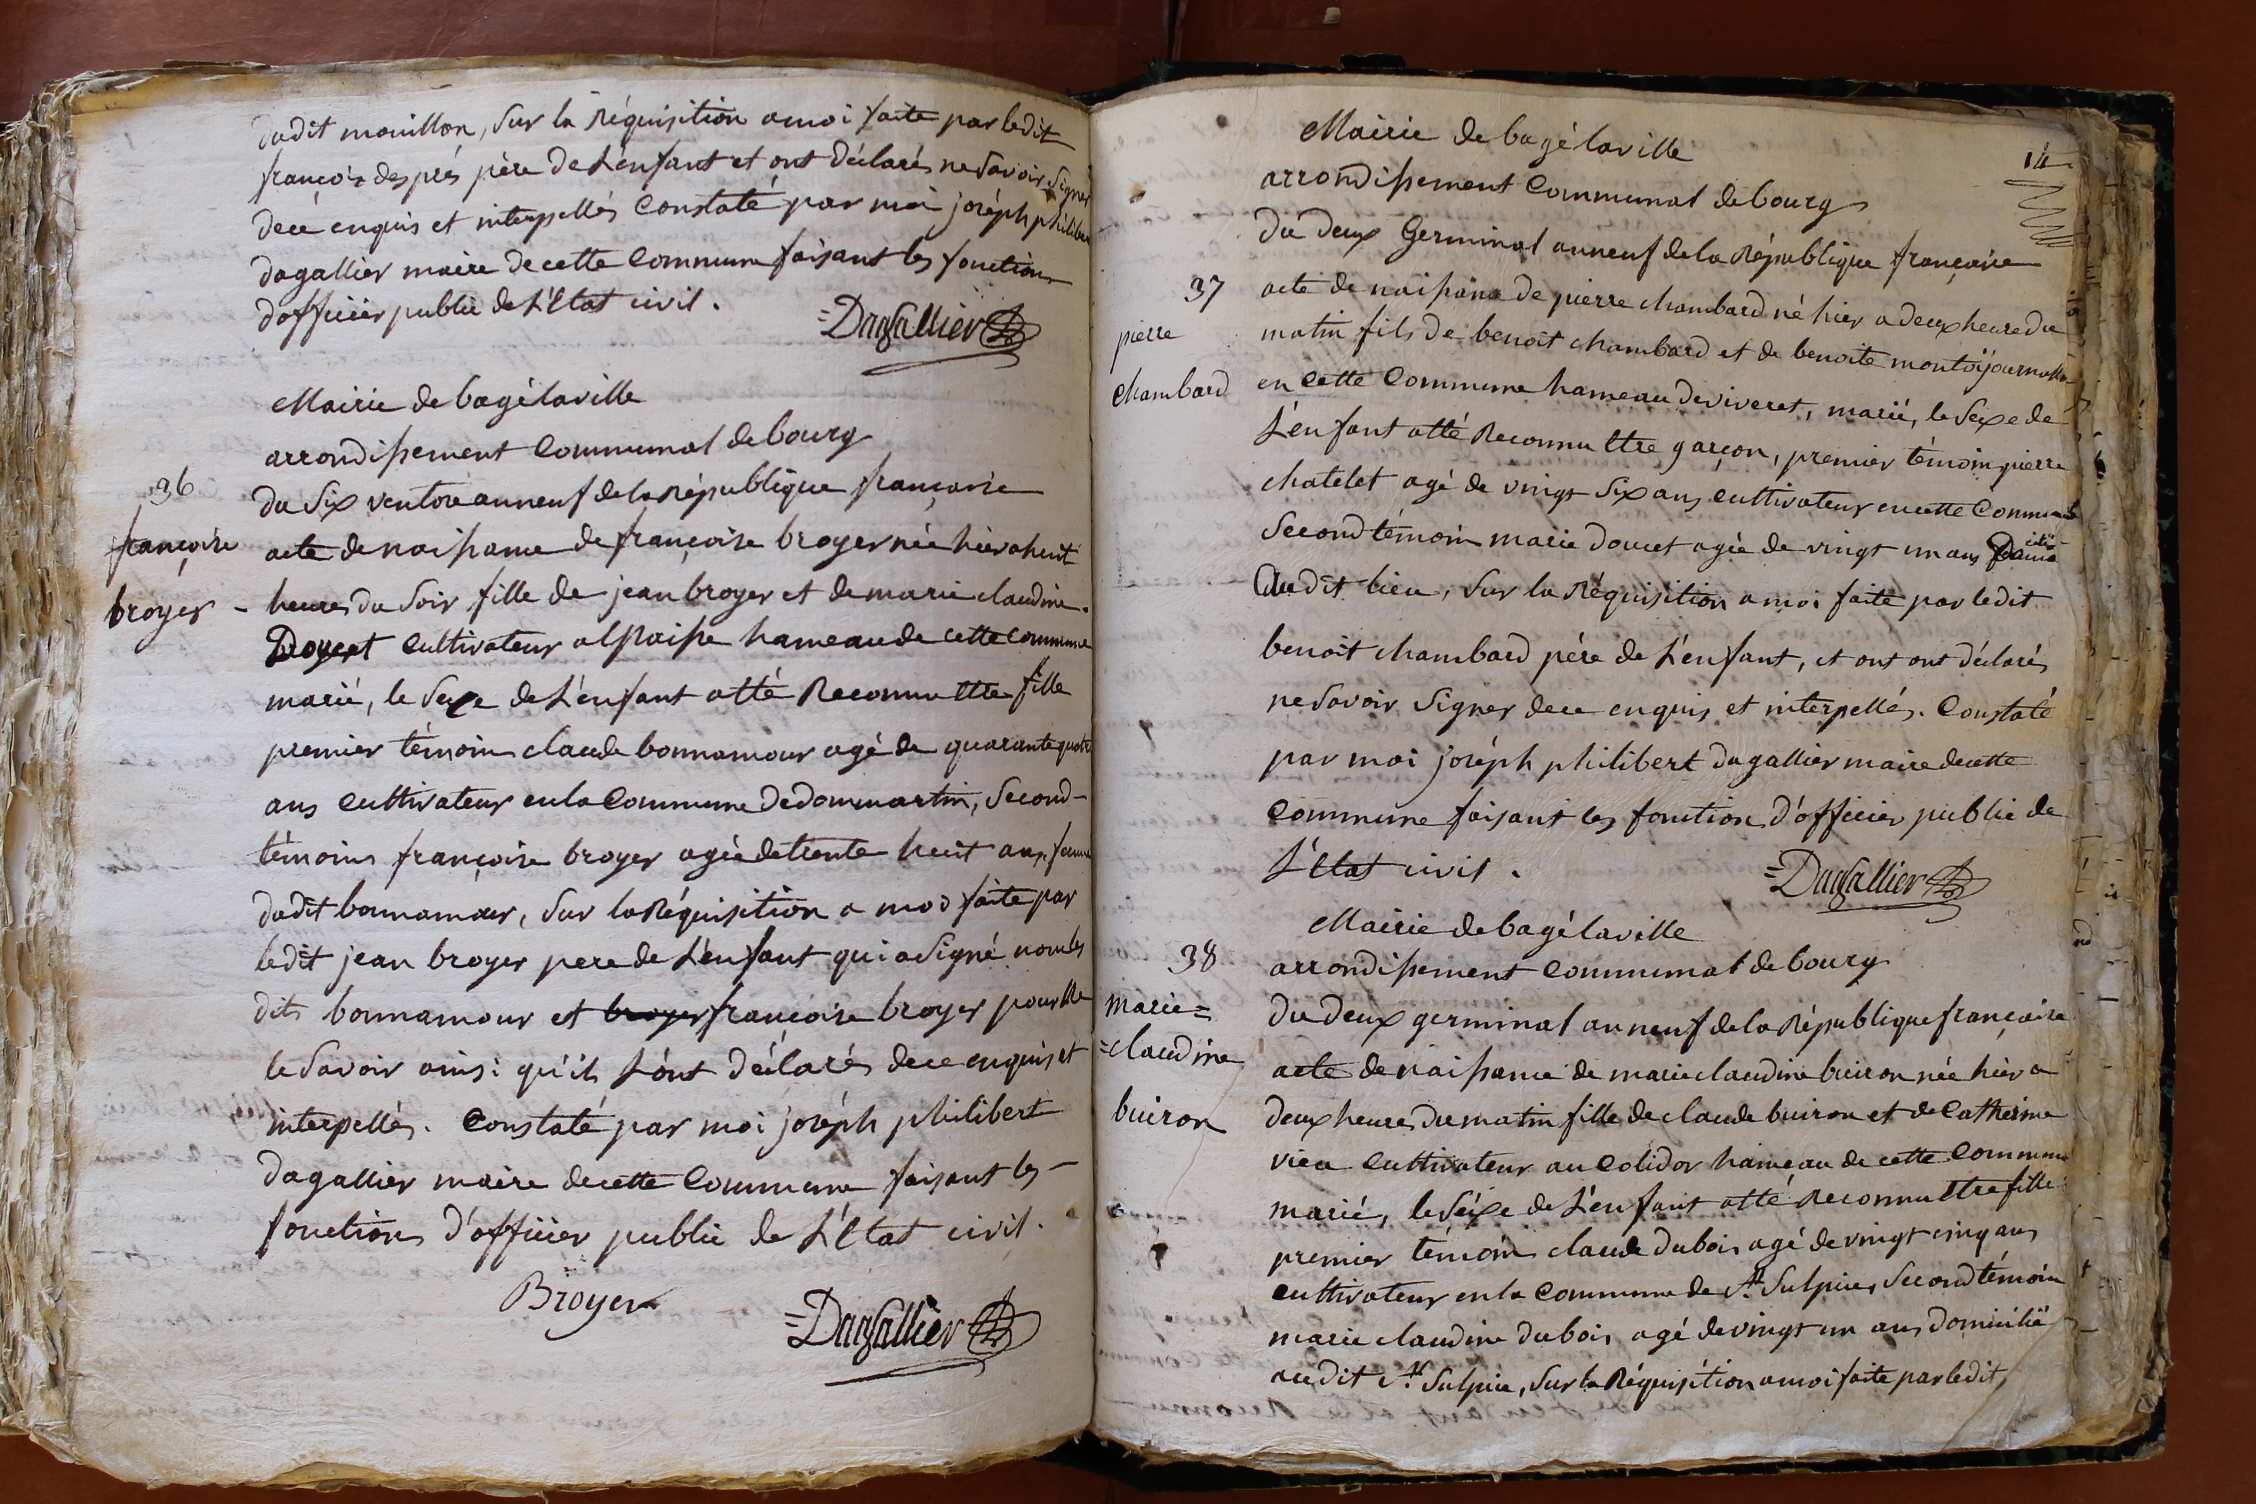 dudit mouillon, sur la Réquisition a moi faite par ledit
françois desprès père de L'énfant et ont déclarés ne Savoir Signer
dece enquis et interpellés Constaté par moi joséph philibert
dagallier maire decette Commune faisant les fonctions
d'officier public de L'Etat civil.
=Dagallier
Mairie de bagé laville
arrondissement Communal de bourg
36
du Six ventose anneuf de la République françoise
françoise
acte de naissance de françoise broyer née hier a huit
broyer -
heures du Soir fille de jean broyer et de marie claudine
Doyert cultivateur al'spaisse hameau de cette commune
marié, le Sexe de L'énfant atté Reconnu Etre fille
premier témoin claude bonnamour agé de quarante quatre
ans cultivateur en la Commune de dommartin, Second-
témoins françoise broyer agée de trente huit ans, femme
dudit bonnamour, Sur la Réquisition a moi faite par
ledit jean broyer pere de L'énfant qui a Signé non les
dits bonnamour et broyer françoise broyer pour ne
le Savoir ainsi qu'ils L'ont déclarés dece enquis et
interpellés. Constaté par moi joséph philibert
dagallier maire decette Commune faisant les
fonctions d'officier public de L'Etat civil.
Broyer
=Dagallier
14
Mairie de bagé laville
arrondissement Communal de bourg
du deux Germinal anneuf de la République françoise
37
acte de naissance de pierre chambard né hier a deux heure du
pierre
matin fils de benoit chambard et de benoite montoy journalier
chambard
en cette Commune hameau de viveret, marié, le Sexe de
L'énfant atté Reconnu Etre garçon, premier témoin pierre
chatelet agé de vingt Six ans cultivateur en cette Commune
Second témoin marie doucet agée de vingt un ans
Audit lieu, Sur la Réquisition a moi faite par ledit
benoit chambard père de L'énfant, et ont ont déclarés
ne Savoir Signer dece enquis et interpellés. Constaté
par moi joséph philibert dagallier maire decette
Commune faisant les fonction d'officier public de
L'Etat civil.
=Dagallier
Mairie de bagé laville
38
arrondissement Communal de bourg
marie=
du deux germinal an neuf de la République françoise
=claudine
acte de naissance de marie claudine buiron née hier a
buiron
deux heures du matin fille de claude buiron et de Catherine
vieu cultivateur au Colidor hameau de cette Commune
marié, le Séxe de L'énfant atté Reconnu Etre fille
premier témoin claude dubois agé de vingt cinq ans
cultivateur en la Commune de St. Sulpice, Second témoin
marie claudine dubois agé de vingt un ans domicilié
audit St. Sulpice, Sur la Réquisition a moi faite par ledit